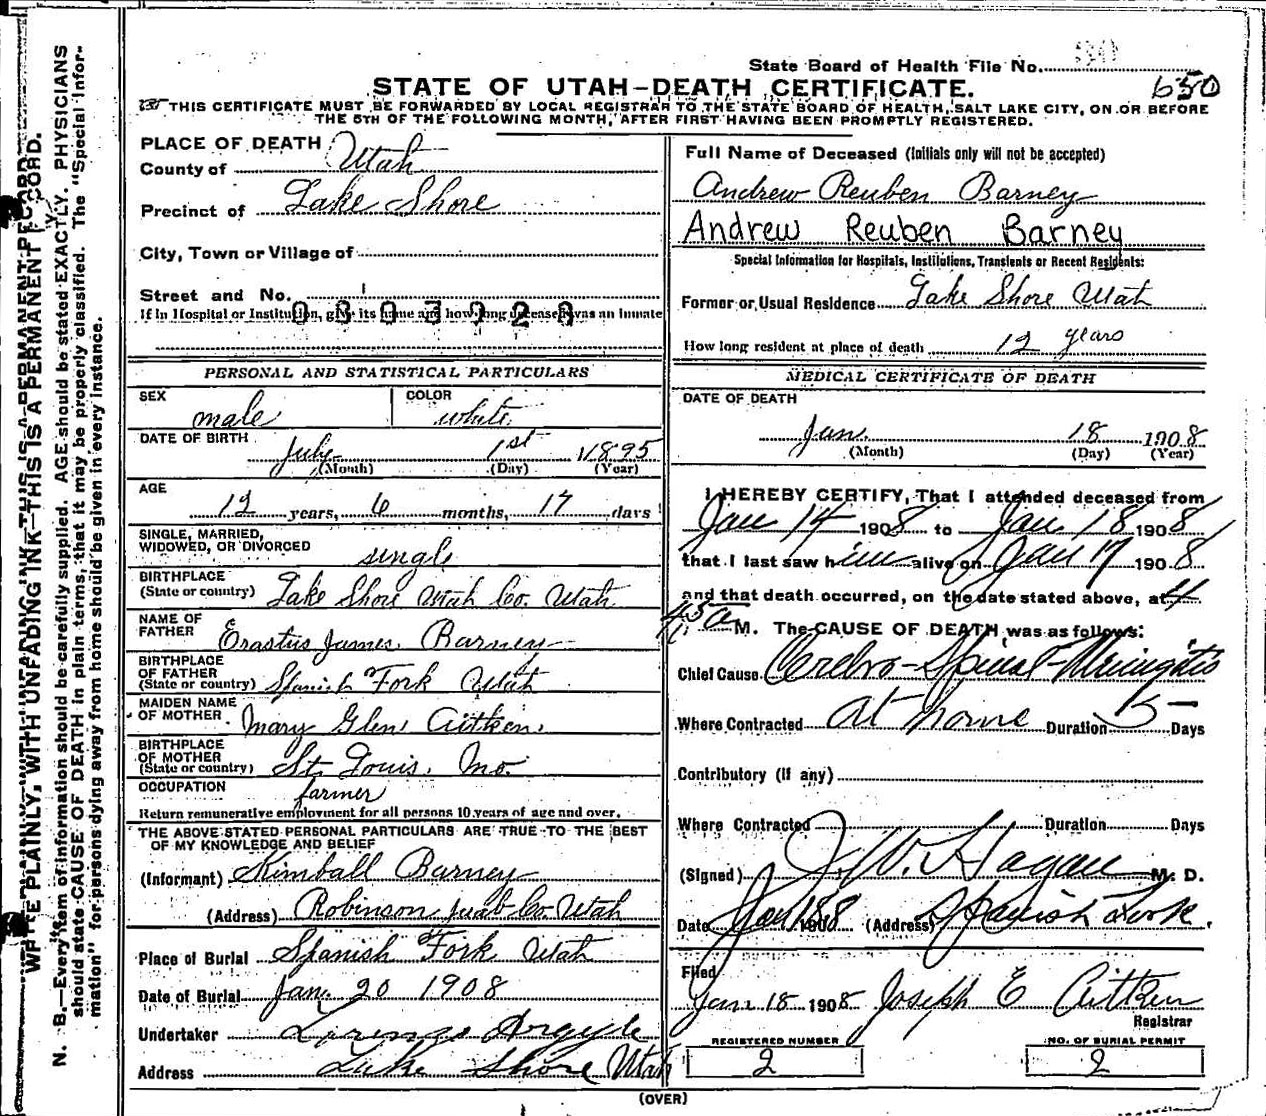 WRITE PLAINLY, WITH UNFADING INK—THIS IS A PERMANENT RECORD.
N. B.—Every item of information should be carefully supplied. AGE should be stated EXACTLY. PHYSICIANS
should state CAUSE OF DEATH in plain terms, that it may be properly classified. The "Special Infor-
mation" for persons dying away from home should be given in every instance.
State Board of Health File No.
650
STATE OF UTAH—DEATH CERTIFICATE.
THIS CERTIFICATE MUST BE FORWARDED BY LOCAL REGISTRAR TO THE STATE BOARD OF HEALTH, SALT LAKE CITY, ON OR BEFORE
THE 5TH OF THE FOLLOWING MONTH, AFTER FIRST HAVING BEEN PROMPTLY REGISTERED.
PLACE OF DEATH
County of Utah
Precinct of Lake Shore
City, Town or Village of
Street and No.
If in Hospital or Institution, give its name and how long deceased was an inmate
PERSONAL AND STATISTICAL PARTICULARS
SEX male COLOR white
DATE OF BIRTH July 1st 1895
(Month) (Day) (Year)
AGE 12 years, 6 months, 17 days
SINGLE, MARRIED,
WIDOWED, OR DIVORCED single
BIRTHPLACE
(State or country) Lake Shore Utah Co. Utah
NAME OF
FATHER Erastus James Barney
BIRTHPLACE
OF FATHER
(State or country) Spanish Fork Utah
MAIDEN NAME
OF MOTHER Mary Glen Aitken
BIRTHPLACE
OF MOTHER
(State or country) St. Louis, Mo.
OCCUPATION farmer
Return remunerative employment for all persons 10 years of age and over.
THE ABOVE STATED PERSONAL PARTICULARS ARE TRUE TO THE BEST
OF MY KNOWLEDGE AND BELIEF
(Informant) Kimball Barney
(Address) Robinson Juab Co Utah
Place of Burial Spanish Fork Utah
Date of Burial Jan. 20 1908
Undertaker Lorenzo Argyle
Address Lake Shore Utah
Full Name of Deceased (Initials only will not be accepted)
Andrew Reuben Barney
Andrew Reuben Barney
Special Information for Hospitals, Institutions, Transients or Recent Residents:
Former or Usual Residence Lake Shore Utah
How long resident at place of death 12 years
MEDICAL CERTIFICATE OF DEATH
DATE OF DEATH
Jan. 18 1908
(Month) (Day) (Year)
I HEREBY CERTIFY, That I attended deceased from
Jan 14 1908 to Jan 18 1908
that I last saw him alive on Jan 17 1908
and that death occurred, on the date stated above, at 4
45 a M. The CAUSE OF DEATH was as follows:
Chief Cause Cerebro-Spinal-Meningitis
Where Contracted at home Duration 5 Days
Contributory (if any)
Where Contracted Duration Days
(Signed) J W. Hagan M. D.
Date Jan 18 1908 (Address) Spanish Fork.
Filed
Jan 18 1908 Joseph E Aitken
Registrar
REGISTERED NUMBER NO. OF BURIAL PERMIT
2 2
(OVER)